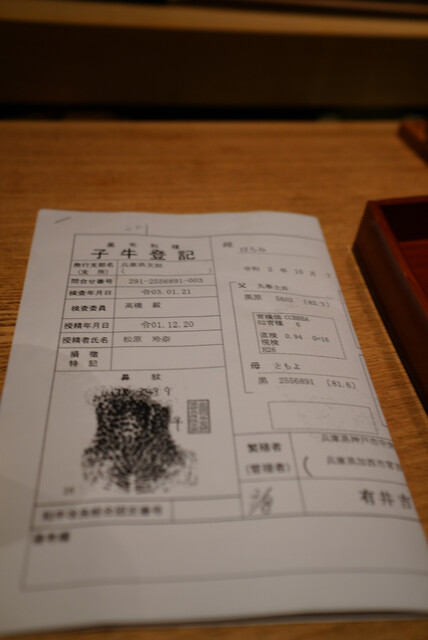 黒毛和種
子牛登記
発行支部名
(支所)
兵庫県支部
問合せ番号 291-2556891-003
検査年月日 令03.01.21
検査委員 高橋 毅
授精年月日 令01.12.20
授精者氏名 松原 玲奈
損徴
特記
鼻紋
令和 2 年 10 月
父 丸春土井
黒原 5602 (82.3)
育種価 CCBBBA
直検 0.94
現検
H26
母 ともよ
黒 2556891 (81.6)
繁殖者
(管理者)
兵庫県神戸市
兵庫県加西市
有井吉